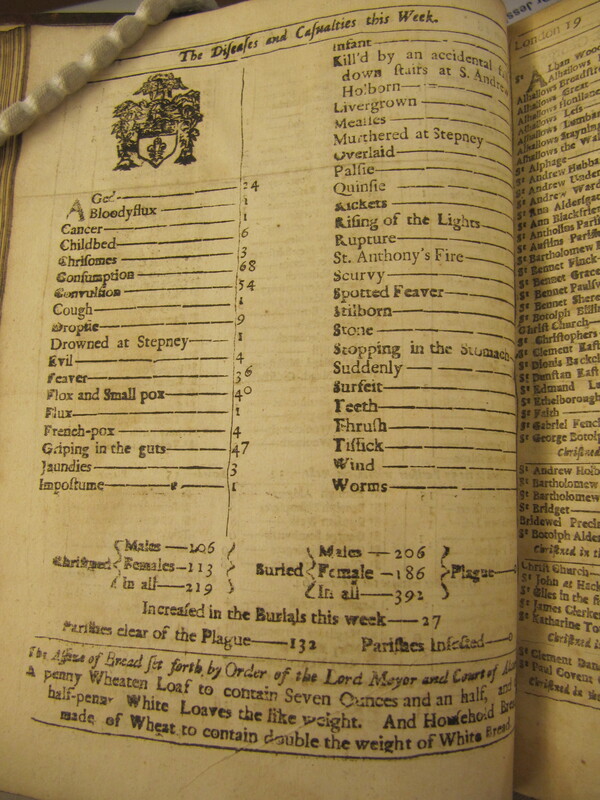 The Diseases and Casualties this Week.
Aged 24
A Bloodyflux 1
Cancer 1
Childbed 6
Chrisomes 3
Consumption 68
Convulsion 54
Cough 1
Dropsie 9
Drowned at Stepney 1
Evil 4
Feaver 36
Flox and Small pox 40
Flux 1
French-pox 4
Griping in the guts 47
Jaundies 3
Impostume 1
Infant
Kill'd by an accidental
down stairs at S. Andrew
Holborn
Livergrown
Measles
Murthered at Stepney
Overlaid
Palsie
Quinsie
Rickets
Rising of the Lights
Rupture
St. Anthony's Fire
Scurvy
Spotted Feaver
Stilborn
Stone
Stopping in the Stomach
Suddenly
Surfeit
Teeth
Thrush
Tissick
Wind
Worms
Christned Males 106 Females 113 In all 219
Buried Males 206 Female 186 In all 392 Plague
Increased in the Burials this week 27
Parishes clear of the Plague 132 Parishes Infected 0
The Assize of Bread set forth by Order of the Lord Mayor and Court of
A penny Wheaten Loaf to contain Seven Ounces and an half, and
half-penny White Loaves the like weight. And Houshold
made of Wheat to contain double the weight of White Bread
London 19
St Alban
Alhallows
Alhallows Great
Alhallows
Alhallows Less
Alhallows
Alhallows Stayning
Alhallows the
St Alphage
St Andrew
St Andrew
St Andrew
St Ann
St Ann Blackfrier
St
St Austins
St Bartholomew
St Bennet Finck
St Bennet Grace
St Bennet
St Bennet Shere
St Botolph
Christ Church
St Christophers
St Clement East
St Dionis
St Dunstan East
St Edmund
St Ethelborough
St Faith
St Gabriel Fench
St George Botol
Christned
St Andrew Holb
St Bartholomew
St Bartholomew
St Bridget
Bridewel Precin
St Botolph Alder
Christned in th
Christ Church
St John at Hack
St Giles in the
St James Clerke
St Katharine
Christned
St Clement Dane
St Paul Covent
Christned in the